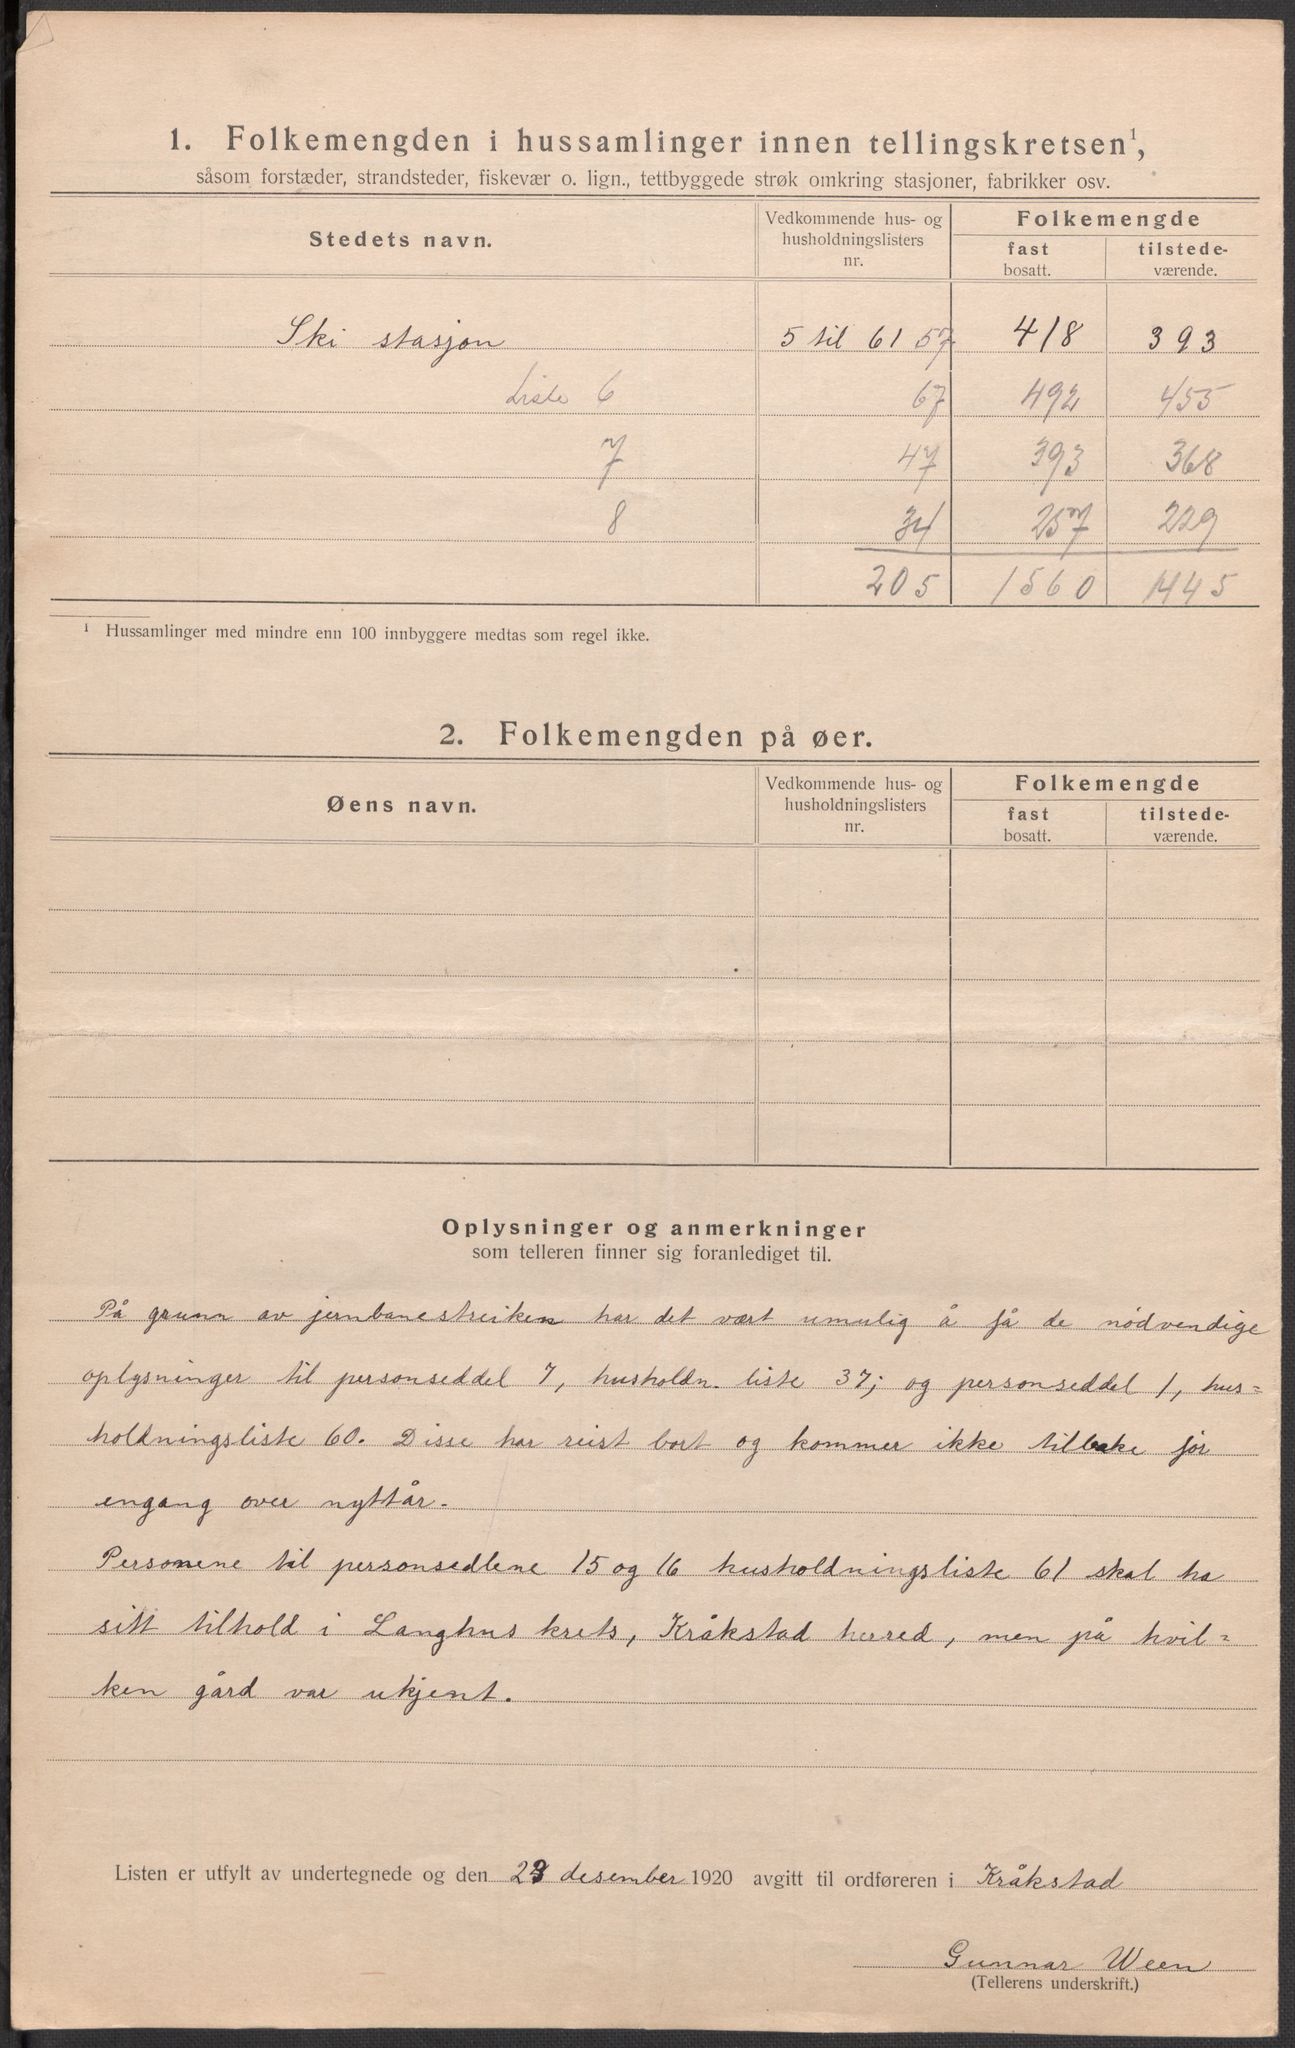 1. Folkemengden i hussamlinger innen tellingskretsen¹,
såsom forstæder, strandsteder, fiskevær o. lign., tettbyggede strøk omkring stasjoner, fabrikker osv.
Stedets navn.
Vedkommende hus- og
husholdningslisters
nr.
Folkemengde
fast
bosatt.
tilstede-
værende.
Ski stasjon 5 til 61 57 418 393
Liste 6 67 492 455
7 47 393 368
8 34 257 229
205 1560 1445
¹ Hussamlinger med mindre enn 100 innbyggere medtas som regel ikke.
2. Folkemengden på øer.
Øens navn.
Vedkommende hus- og
husholdningslisters
nr.
Folkemengde
fast
bosatt.
tilstede-
værende.
Oplysninger og anmerkninger
som telleren finner sig foranlediget til.
På grunn av jernbanestreiken har det vært umulig å få de nødvendige
oplysninger til personseddel 7, husholdn. liste 37; og personseddel 1, hus=
holdningsliste 60. Disse har reist bort og kommer ikke tilbake før
engang over nyttår.
Personene til personsedlene 15 og 16 husholdningsliste 61 skal ha
sitt tilhold i Langhus krets, Kråkstad herred, men på hvil=
ken gård var ukjent.
Listen er utfylt av undertegnede og den desember 1920 avgitt til ordføreren i Kråkstad
Gunnar Ween
(Tellerens underskrift.)